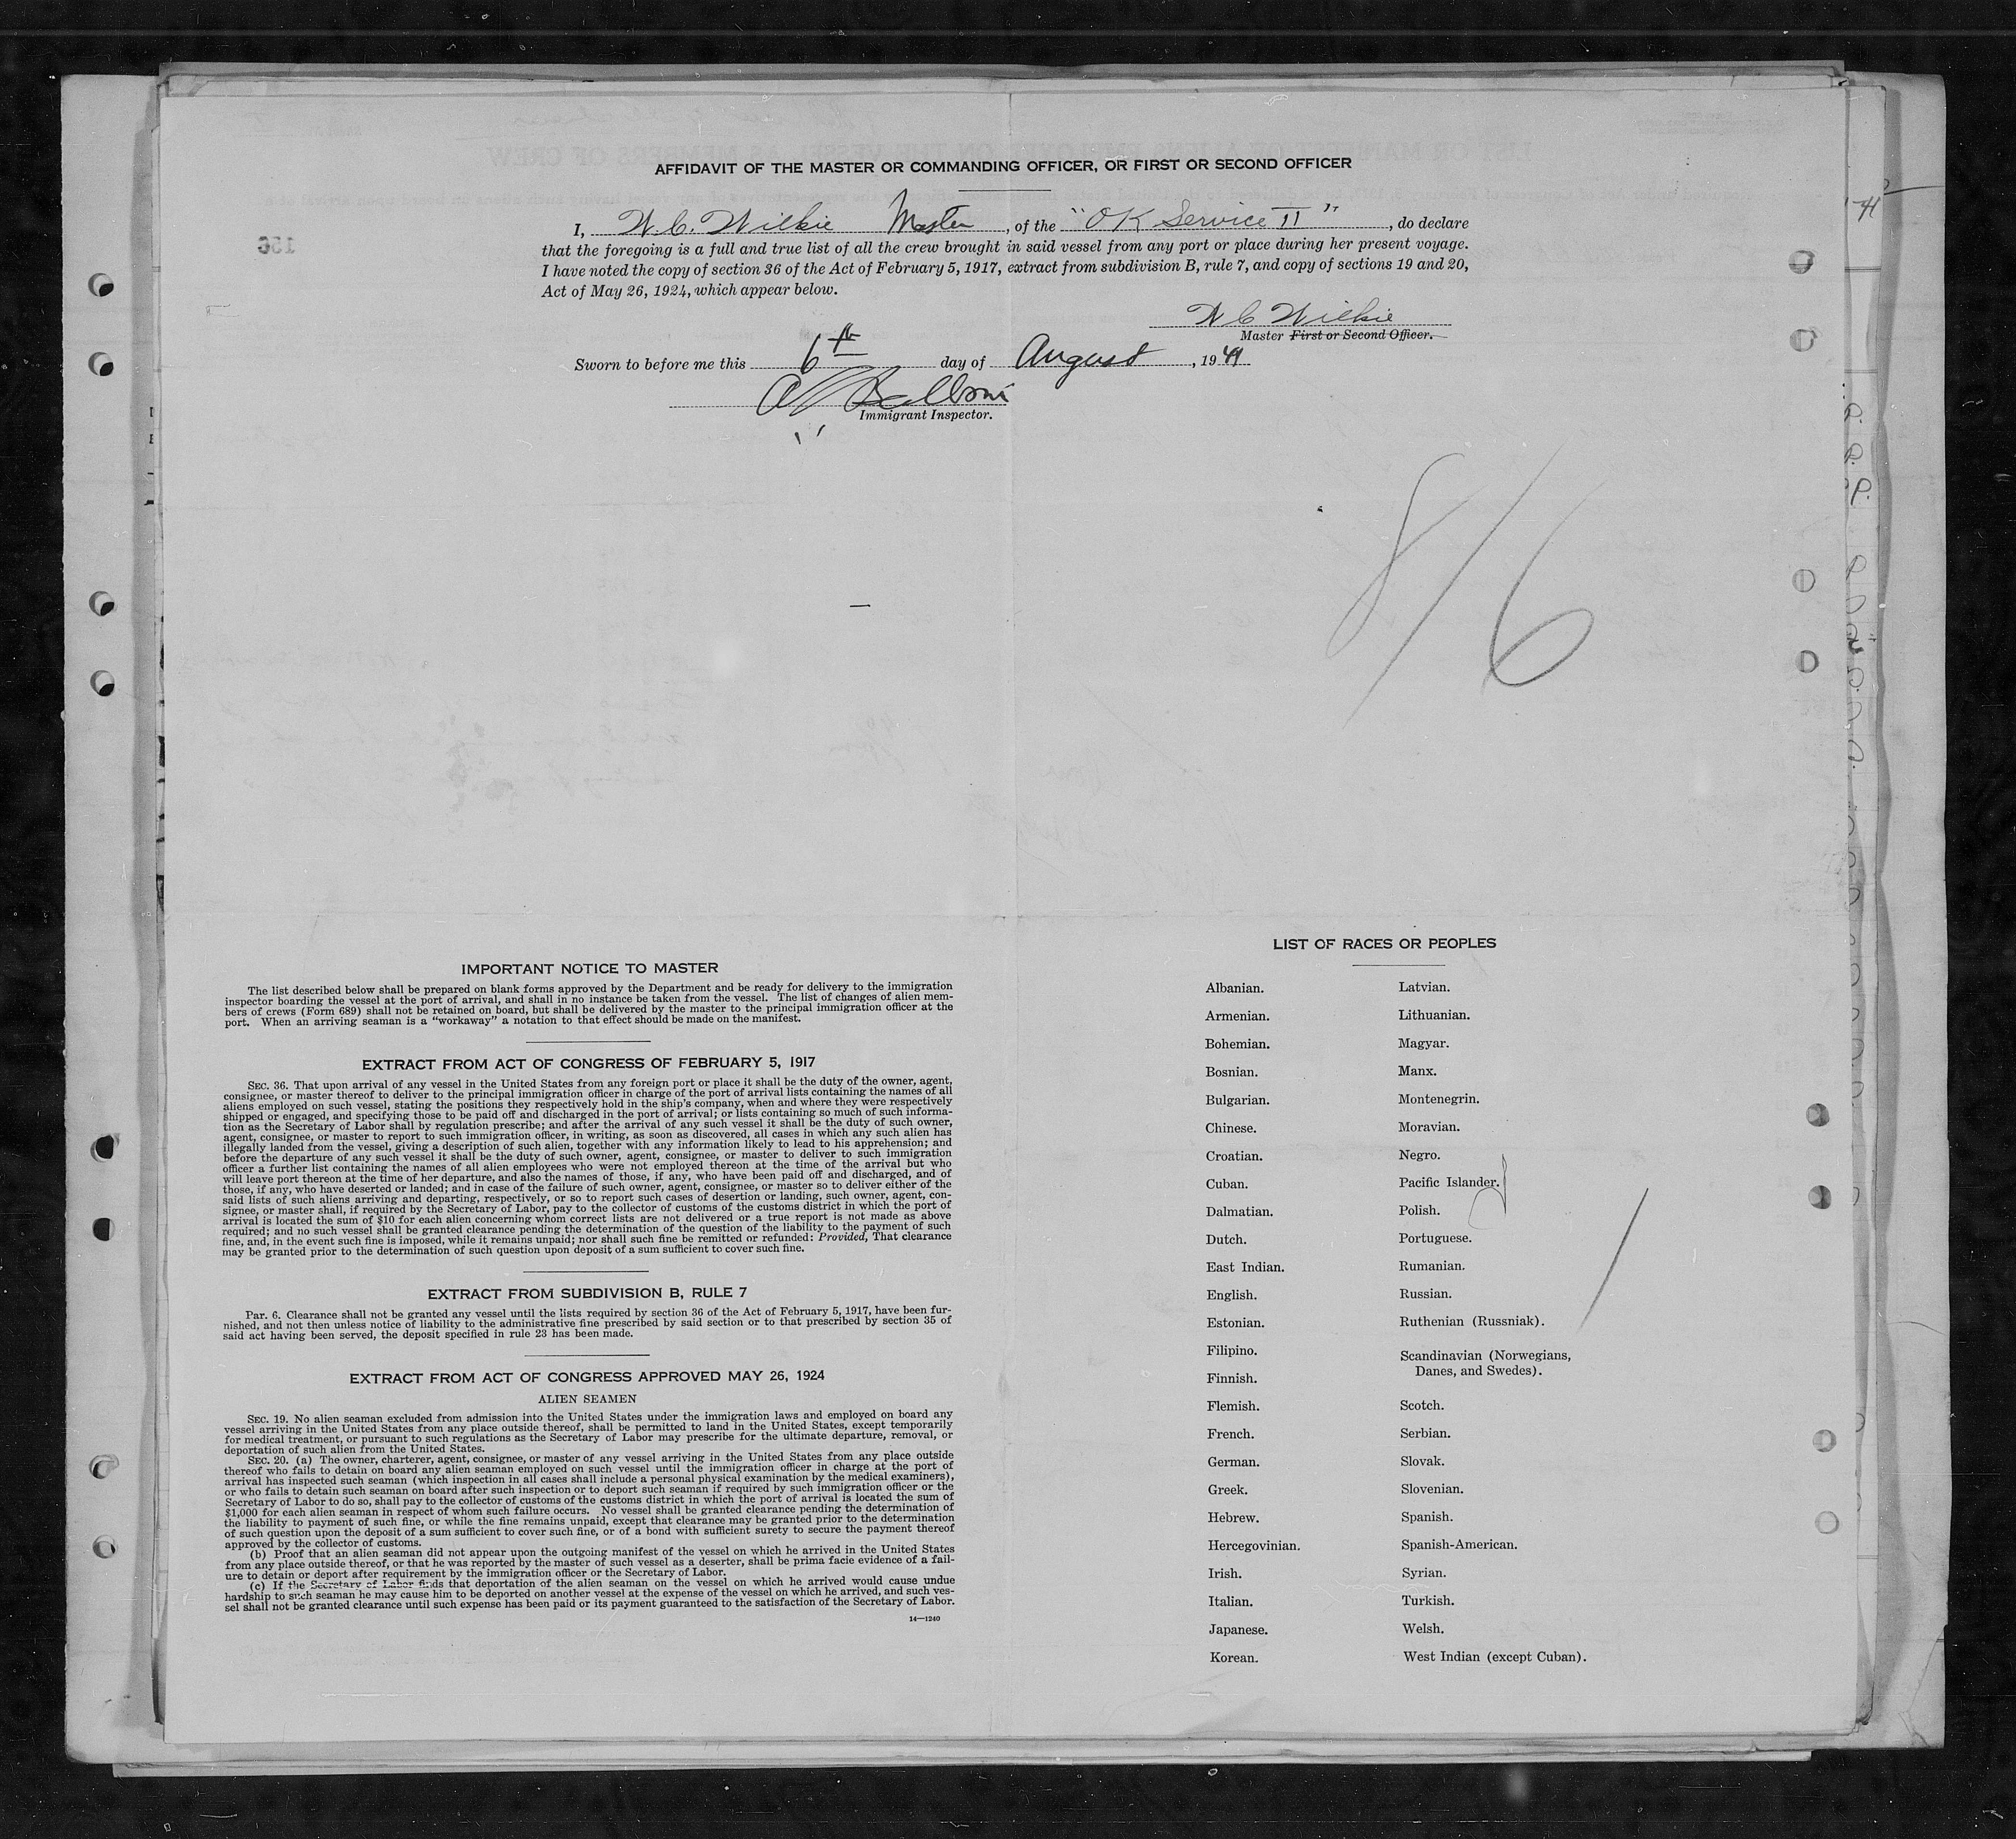 AFFIDAVIT OF THE MASTER OR COMMANDING OFFICER, OR FIRST OR SECOND OFFICER
I, W. C. Wilkie Master, of the "OK Service II", do declare
that the foregoing is a full and true list of all the crew brought in said vessel from any port or place during her present voyage.
I have noted the copy of section 36 of the Act of February 5, 1917, extract from subdivision B, rule 7, and copy of sections 19 and 20,
Act of May 26, 1924, which appear below.
W C Wilkie
Master First or Second Officer.
Sworn to before me this 6th day of August, 1941
Immigrant Inspector.
8/6
IMPORTANT NOTICE TO MASTER
The list described below shall be prepared on blank forms approved by the Department and be ready for delivery to the immigration
inspector boarding the vessel at the port of arrival, and shall in no instance be taken from the vessel. The list of changes of alien mem-
bers of crews (Form 689) shall not be retained on board, but shall be delivered by the master to the principal immigration officer at the
port. When an arriving seaman is a "workaway" a notation to that effect should be made on the manifest.
EXTRACT FROM ACT OF CONGRESS OF FEBRUARY 5, 1917
SEC. 36. That upon arrival of any vessel in the United States from any foreign port or place it shall be the duty of the owner, agent,
consignee, or master thereof to deliver to the principal immigration officer in charge of the port of arrival lists containing the names of all
aliens employed on such vessel, stating the positions they respectively hold in the ship's company, when and where they were respectively
shipped or engaged, and specifying those to be paid off and discharged in the port of arrival; or lists containing so much of such informa-
tion as the Secretary of Labor shall by regulation prescribe; and after the arrival of any such vessel it shall be the duty of such owner,
agent, consignee, or master to report to such immigration officer, in writing, as soon as discovered, all cases in which any such alien has
illegally landed from the vessel, giving a description of such alien, together with any information likely to lead to his apprehension; and
before the departure of any such vessel it shall be the duty of such owner, agent, consignee, or master to deliver to such immigration
officer a further list containing the names of all alien employees who were not employed thereon at the time of the arrival but who
will leave port thereon at the time of her departure, and also the names of those, if any, who have been paid off and discharged, and of
those, if any, who have deserted or landed; and in case of the failure of such owner, agent, consignee, or master so to deliver either of the
said lists of such aliens arriving and departing, respectively, or so to report such cases of desertion or landing, such owner, agent, con-
signee, or master shall, if required by the Secretary of Labor, pay to the collector of customs of the customs district in which the port of
arrival is located the sum of $10 for each alien concerning whom correct lists are not delivered or a true report is not made as above
required; and no such vessel shall be granted clearance pending the determination of the question of the liability to the payment of such
fine, and, in the event such fine is imposed, while it remains unpaid; nor shall such fine be remitted or refunded: Provided, That clearance
may be granted prior to the determination of such question upon deposit of a sum sufficient to cover such fine.
EXTRACT FROM SUBDIVISION B, RULE 7
Par. 6. Clearance shall not be granted any vessel until the lists required by section 36 of the Act of February 5, 1917, have been fur-
nished, and not then unless notice of liability to the administrative fine prescribed by said section or to that prescribed by section 35 of
said act having been served, the deposit specified in rule 23 has been made.
EXTRACT FROM ACT OF CONGRESS APPROVED MAY 26, 1924
ALIEN SEAMEN
SEC. 19. No alien seaman excluded from admission into the United States under the immigration laws and employed on board any
vessel arriving in the United States from any place outside thereof, shall be permitted to land in the United States, except temporarily
for medical treatment, or pursuant to such regulations as the Secretary of Labor may prescribe for the ultimate departure, removal, or
deportation of such alien from the United States.
SEC. 20. (a) The owner, charterer, agent, consignee, or master of any vessel arriving in the United States from any place outside
thereof who fails to detain on board any alien seaman employed on such vessel until the immigration officer in charge at the port of
arrival has inspected such seaman (which inspection in all cases shall include a personal physical examination by the medical examiners),
or who fails to detain such seaman on board after such inspection or to deport such seaman if required by such immigration officer or the
Secretary of Labor to do so, shall pay to the collector of customs of the customs district in which the port of arrival is located the sum of
$1,000 for each alien seaman in respect of whom such failure occurs. No vessel shall be granted clearance pending the determination of
the liability to payment of such fine, or while the fine remains unpaid, except that clearance may be granted prior to the determination
of such question upon the deposit of a sum sufficient to cover such fine, or of a bond with sufficient surety to secure the payment thereof
approved by the collector of customs.
(b) Proof that an alien seaman did not appear upon the outgoing manifest of the vessel on which he arrived in the United States
from any place outside thereof, or that he was reported by the master of such vessel as a deserter, shall be prima facie evidence of a fail-
ure to detain or deport after requirement by the immigration officer or the Secretary of Labor.
(c) If the Secretary of Labor finds that deportation of the alien seaman on the vessel on which he arrived would cause undue
hardship to such seaman he may cause him to be deported on another vessel at the expense of the vessel on which he arrived, and such ves-
sel shall not be granted clearance until such expense has been paid or its payment guaranteed to the satisfaction of the Secretary of Labor.
14—1240
LIST OF RACES OR PEOPLES
Albanian.
Armenian.
Bohemian.
Bosnian.
Bulgarian.
Chinese.
Croatian.
Cuban.
Dalmatian.
Dutch.
East Indian.
English.
Estonian.
Filipino.
Finnish.
Flemish.
French.
German.
Greek.
Hebrew.
Hercegovinian.
Irish.
Italian.
Japanese.
Korean.
Latvian.
Lithuanian.
Magyar.
Manx.
Montenegrin.
Moravian.
Negro.
Pacific Islander.
Polish.
Portuguese.
Rumanian.
Russian.
Ruthenian (Russniak).
Scandinavian (Norwegians,
Danes, and Swedes).
Scotch.
Serbian.
Slovak.
Slovenian.
Spanish.
Spanish-American.
Syrian.
Turkish.
Welsh.
West Indian (except Cuban).